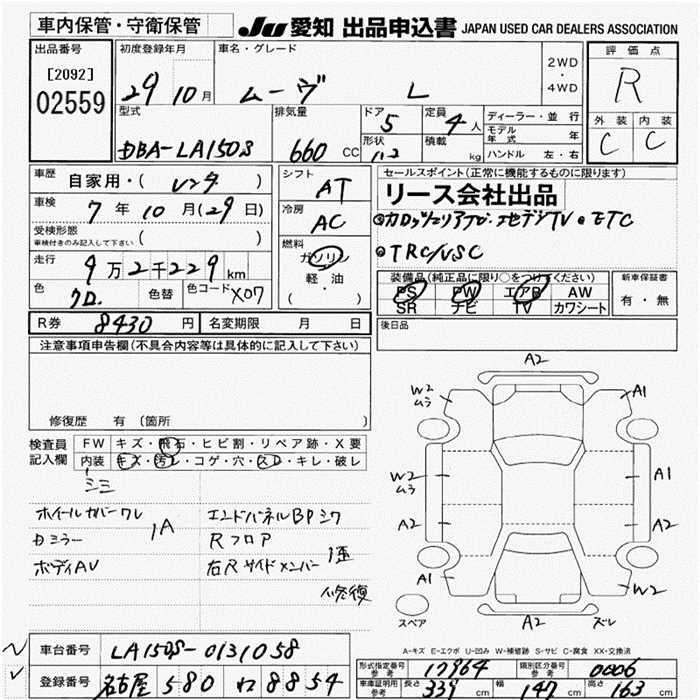 車内保管・守衛保管
JU 愛知 出品申込書 JAPAN USED CAR DEALERS ASSOCIATION
出品番号
[2092]
02559
初度登録年月
29 10月
車名・グレード
ムーヴ L
2WD
・
4WD
評価点
R
外装 内装
C C
型式
DBA-LA150S
排気量
660 CC
ドア
5
形状
定員
4人
積載
kg
ディーラー・並行
モデル年式 年
ハンドル 左・右
車歴
自家用・( レンタ )
車検
7年 10月(29日)
受検形態
車検付きのみ記入して下さい ( )
走行
9万2千229km
色
クロ
色替
色コード X07
シフト
AT
冷房
AC
燃料
ガソリン
軽・油
( )
セールスポイント(正常に機能するものに限ります)
リース会社出品
◎カロッツェリアナビ・地デジTV ◎ETC
◎TRC/VSC
装備品(純正品に限り○をつけてください)
PS PW エアB AW
SR ナビ TV カワシート
新車保証書
有・無
後日品
R券 8430円
名変期限 月 日
注意事項申告欄(不具合内容等は具体的に記入して下さい)
修復歴 有 (箇所 )
検査員記入欄
FW キズ・飛石・ヒビ割・リペア跡・X要
内装 キズ・汚レ・コゲ・穴・スレ・キレ・破レ
シミ
ホイールカバーワレ
Dミラー
1A
ボディAV
エンドパネルBPシワ
Rフロア
右Rサイドメンバー 1歪
修復
A2
W2
ムラ
A1
W2
ムラ
A1
A2
A2
A1
W2
スペア
A2 ズレ
A-キズ E-エクボ U-凹み W-補修跡 S-サビ C-腐食 XX-交換済
車台番号
LA150S-0131058
登録番号
名古屋 580 わ 8854
型式指定番号
参考
17964
類別区分番号
参考
0006
車庫証明用
参考
長さ 339cm
幅 147cm
高さ 163cm